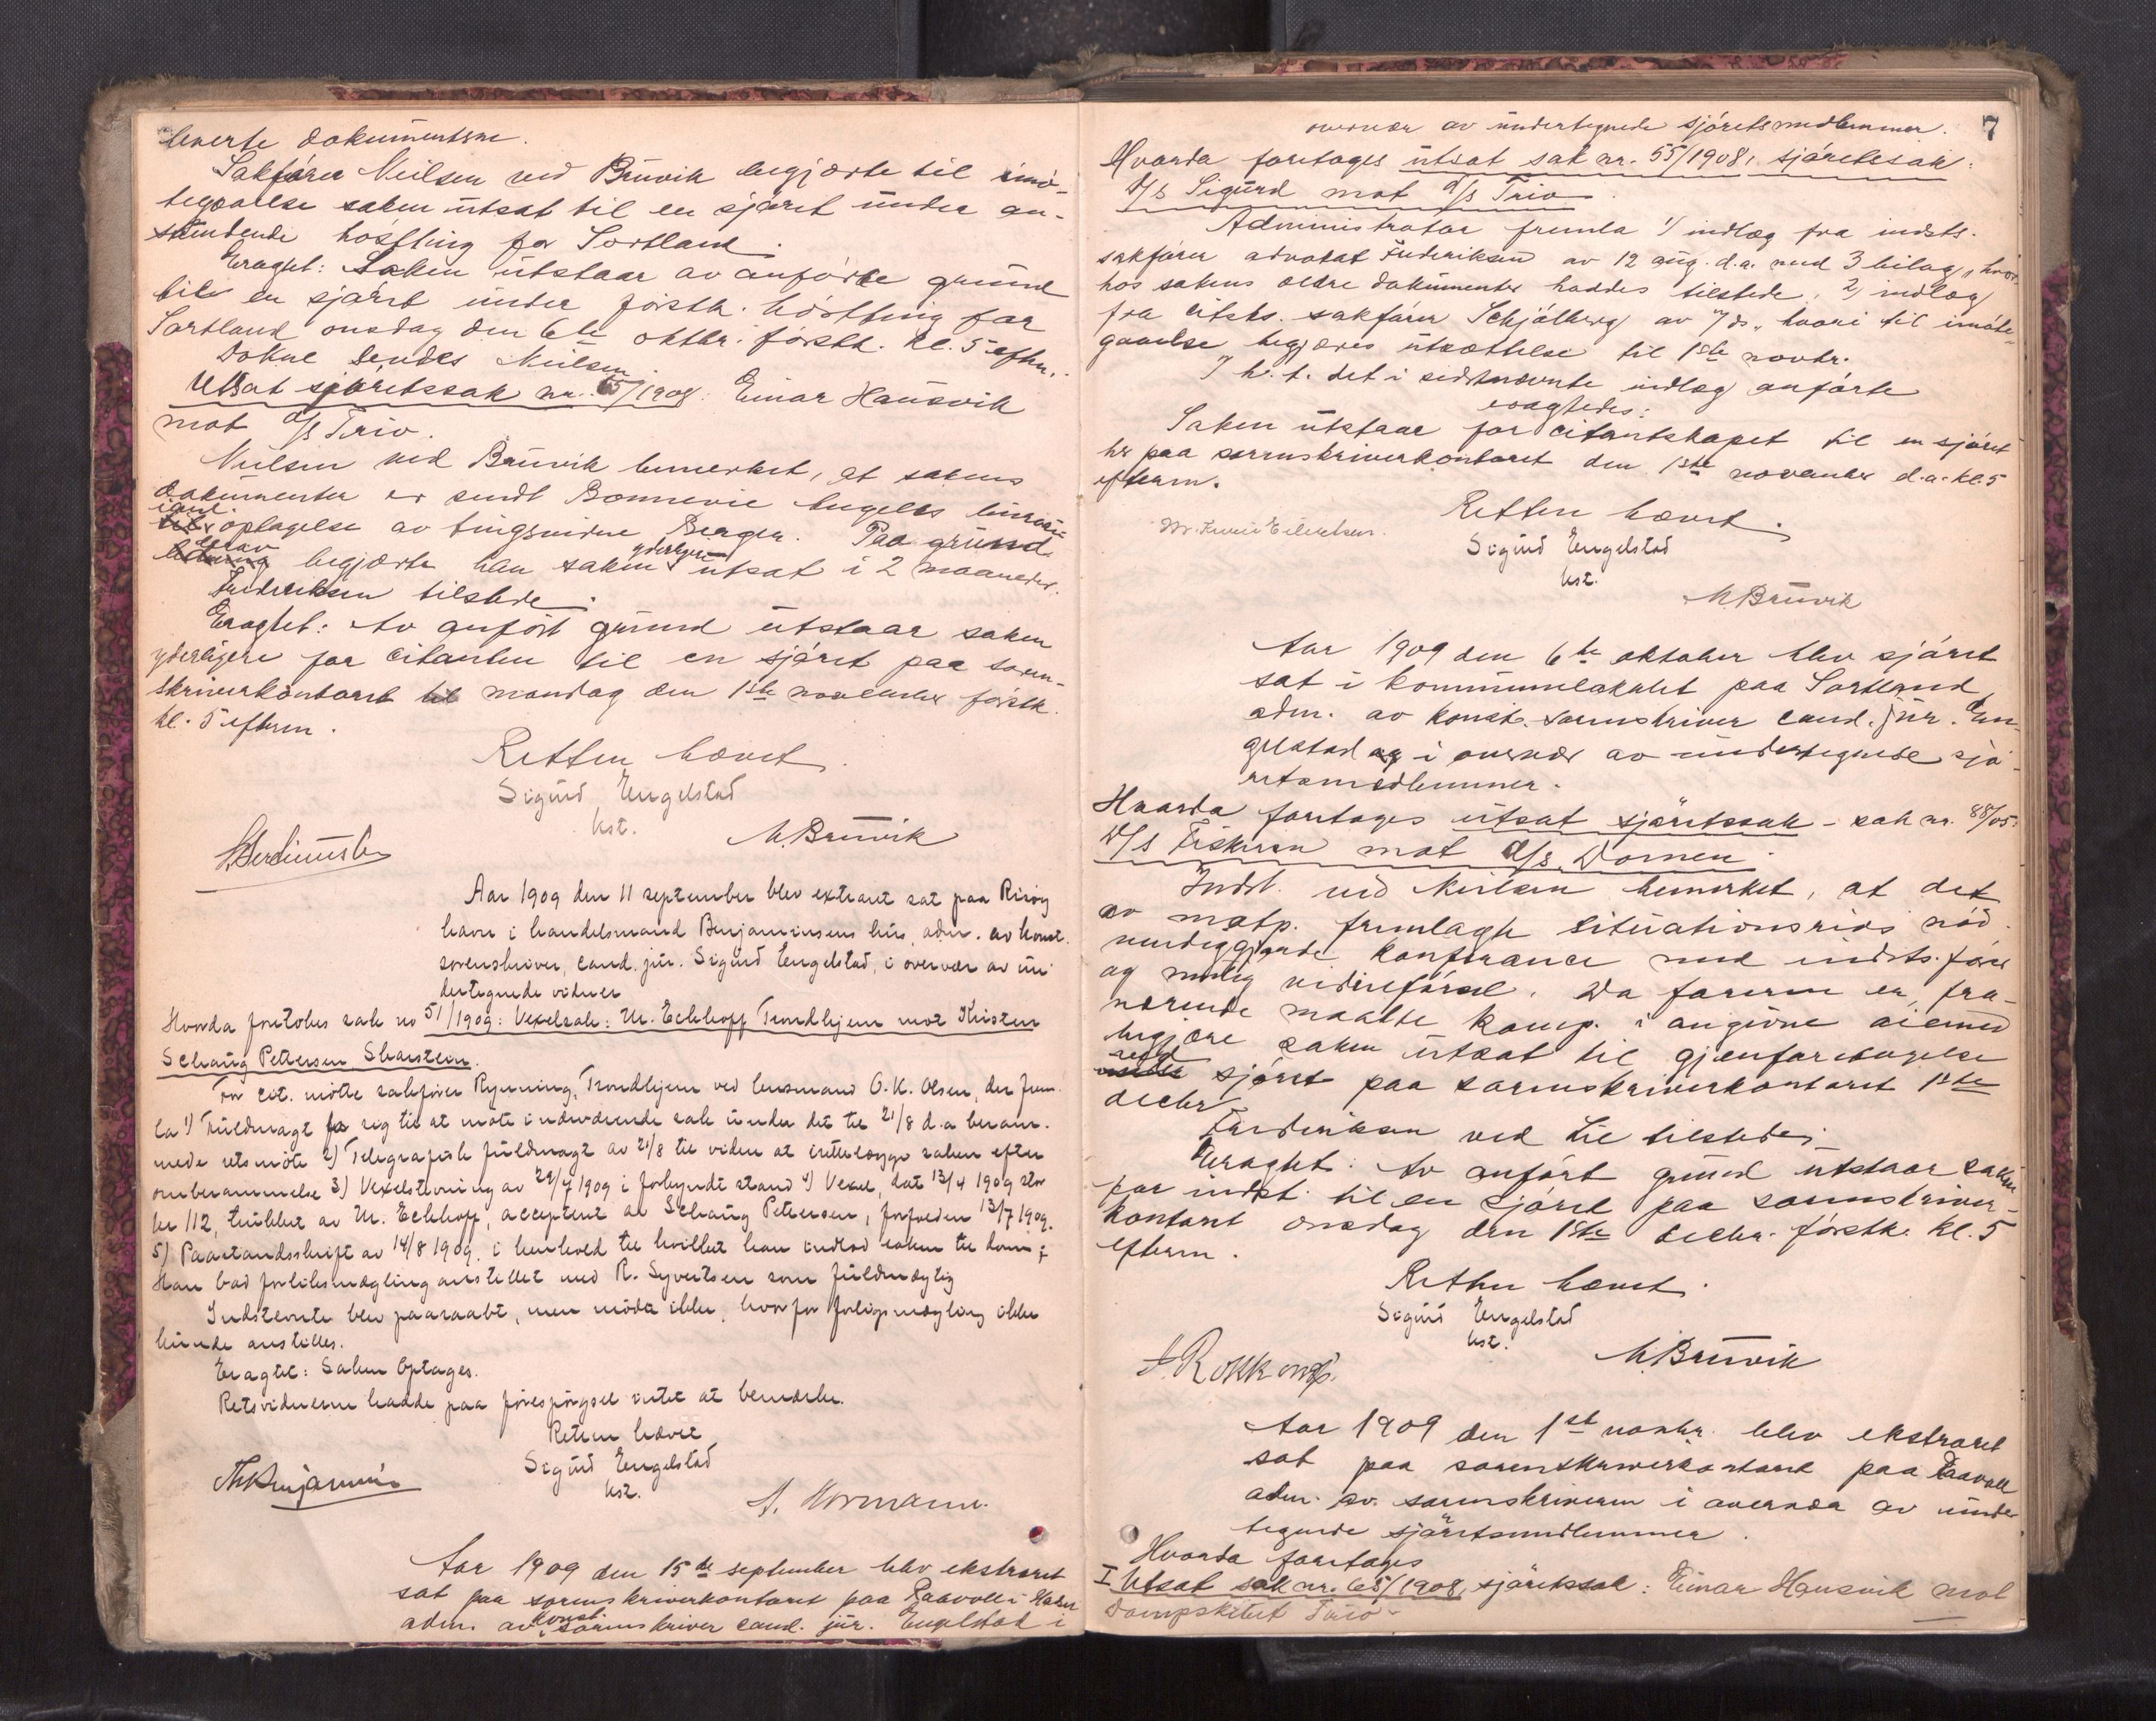 leverte dokumenterne.
Sakfører Nielsen ved Bruvik begjærte til imø-
tegaaelse saken utsat til en sjøret under an-
standende høstting for Sortland.
Eragtet: Saken utstaar av anførte grund
til en sjøret under førstk. høstting for
Sortland onsdag den 6te oktbr. førstk. kl. 5 efterm.
Dokne sendes Nielsen
Utsat sjøretssak nr. 65/1908: Einar Hansvik
mot D/S Trio.
Nielsen ved Bruvik bemerket, at sakens
dokumenter er sendt Bonnevie Angells
til optagelse av tingsvidne Bergen. Paa grund
herav begjærte han saken yderligere utsat i 2 maaneder.
Frederiksen tilstede.
Eragtet: Av anført grund utstaar saken
yderligere for citanten til en sjøret paa soren-
skriverkontoret til mandag den 1ste november førstk.
kl. 5 efterm.
Retten hævet.
Sigurd Engelstad
kst.
M. Bruvik
Aar 1909 den 11 september blev extraret sat paa Risøy
havn i handelsmand Benjaminsens hus, adm. av konst.
sorenskriver, cand. jur. Sigurd Engelstad, i overvær av un
dertegnede vidner
Hvorda foretokes sak no 51/1909: Vexelsak: M. Eckhoff Trondhjem mot Kristen
Schaug Pettersen Skarstein.
For cit. møtte sakfører Rynning, Trondhjem ved lensmand O. K. Olsen, der frem
la 1) Fuldmagt for sig til at møte i nærværende sak under det til 21/8 d.a beram-
mede retsmøte 2) Telegrafisk fuldmagt av 21/8 til viden at indlægge saken efter
omberammelse 3) Vexelstevning av 29/7 1909 i forkyndt stand 4) Vexel, dat 13/4 1909 stor
kr 112, trukket av M. Eckhoff, acceptert av Schaug Pettersen, forfalden 13/7 1909.
5) Paastandsskrift av 14/8 1909. i henhold til hvilket han indlod saken til dom;
Han bad forliksmægling anstillet med R. Syvertsen som fuldmægtig
Indstevnte blev paaraabt, men mødte ikke, hvorfor forligsmægling ikke
kunde anstilles.
Eragtet: Saken Optages.
Retsvidnerne hadde paa forespørgsel intet at bemærke.
Retten hævet
Sigurd Engelstad
kst.
A. Normann.
Aar 1909 den 15de september blev ekstraret
sat paa sorenskriverkontoret paa Raavoll i Hasv
adm. av konst. sorenskriver cand. jur. Engelstad i
7
overvær av undertegnede sjøretsmedlemmer.
Hvorda foretoges utsat sak nr. 55/1908, sjøretssak:
D/S Sigurd mot D/S Trio
Administrator fremla 1) indlæg fra indsts.
sakfører advokat Frederiksen av 12 aug. d.a. med 3 bilag, hvor-
hos sakens ældre dokumenter haddes tilstede, 2) indlæg
fra citsts. sakfører Schjølberg av 7/ ds., hvori til imøte-
gaaelse begjæres utsættelse til 1ste novbr.
I h. t. det i sidstnævnte indlæg anførte
eragtedes:
Saken utstaar for citantskapet til en sjøret
her paa sorenskriverkontoret den 1ste november d.a. kl. 5
efterm.
Retten hævet.
Sigurd Engelstad
kst.
M. Bruvik
Aar 1909 den 6te oktober blev sjøret
sat i kommunelokalet paa Sortland,
adm. av konst. sorenskriver cand. jur. En-
gelstad og i overvær av undertegnede sjø-
retsmedlemmer.
Hvorda foretoges utsat sjøretssak - sak nr. 88/05:
D/S Fiskeren mot D/S. Dornen.
Indst. ved Nielsen bemerket, at det
av motp. fremlagte situationsrids nød-
vendiggjorde konferance med indsts. fører
og mulig vidneførsel. Da føreren er fra-
værende maatte komp. i angivne øiemed
begjære saken utsat til gjenforetagelse
ved sjøret paa sorenskriverkontoret 1ste
decbr.
Frederiksen ved Lie tilstede.
Eragtet: Av anført grund utstaar saken
for indst. til en sjøret paa sorenskriver-
kontoret onsdag den 1ste decbr. førstk. kl. 5
efterm.
Retten hævet.
Sigurd Engelstad
kst.
M. Bruvik
Aar 1909 den 1st novbr. blev ekstraret
sat paa sorenskriverkontoret paa Raavoll
adm. av sorenskriveren i overvær av under
tegnede sjøretsmedlemmer.
Hvorda foretages
I Utsat sak nr. 65/1908, sjøretssak: Einar Hansvik mot
Dampskibet Trio -